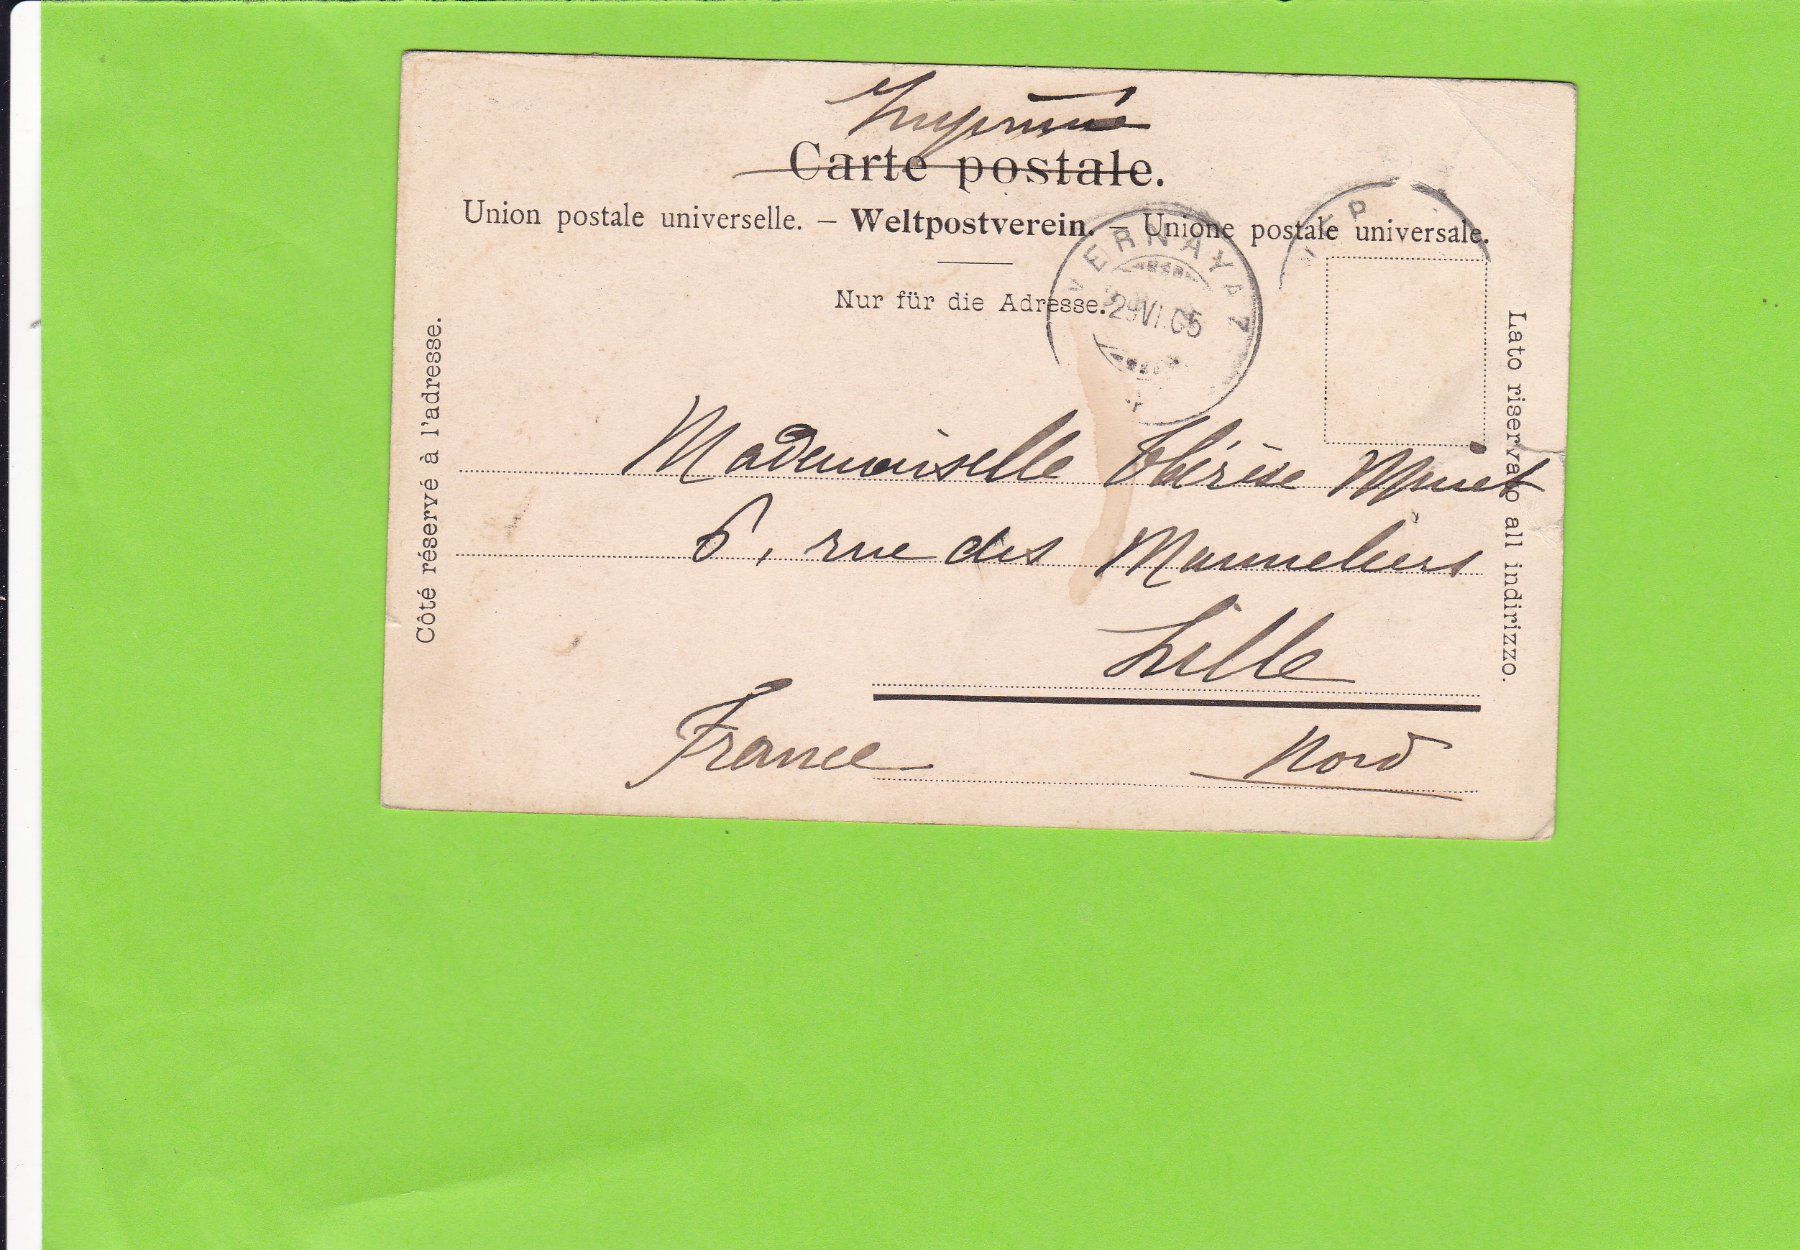 Imprimé
Carte postale.
Union postale universelle. – Weltpostverein. – Unione postale universale.
Nur für die Adresse.
VERNAYAZ
29 VI. 05
VER
Côté réservé à l'adresse.
Lato riservato all indirizzo.
Mademoiselle Thérèse
6, rue des Manneliers
Lille
France Nord